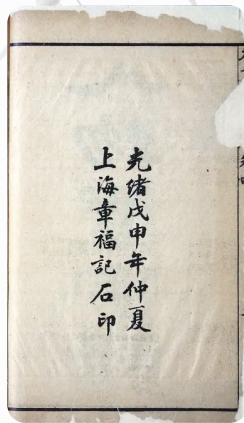 光緒戊申年仲夏
上海章福記石印